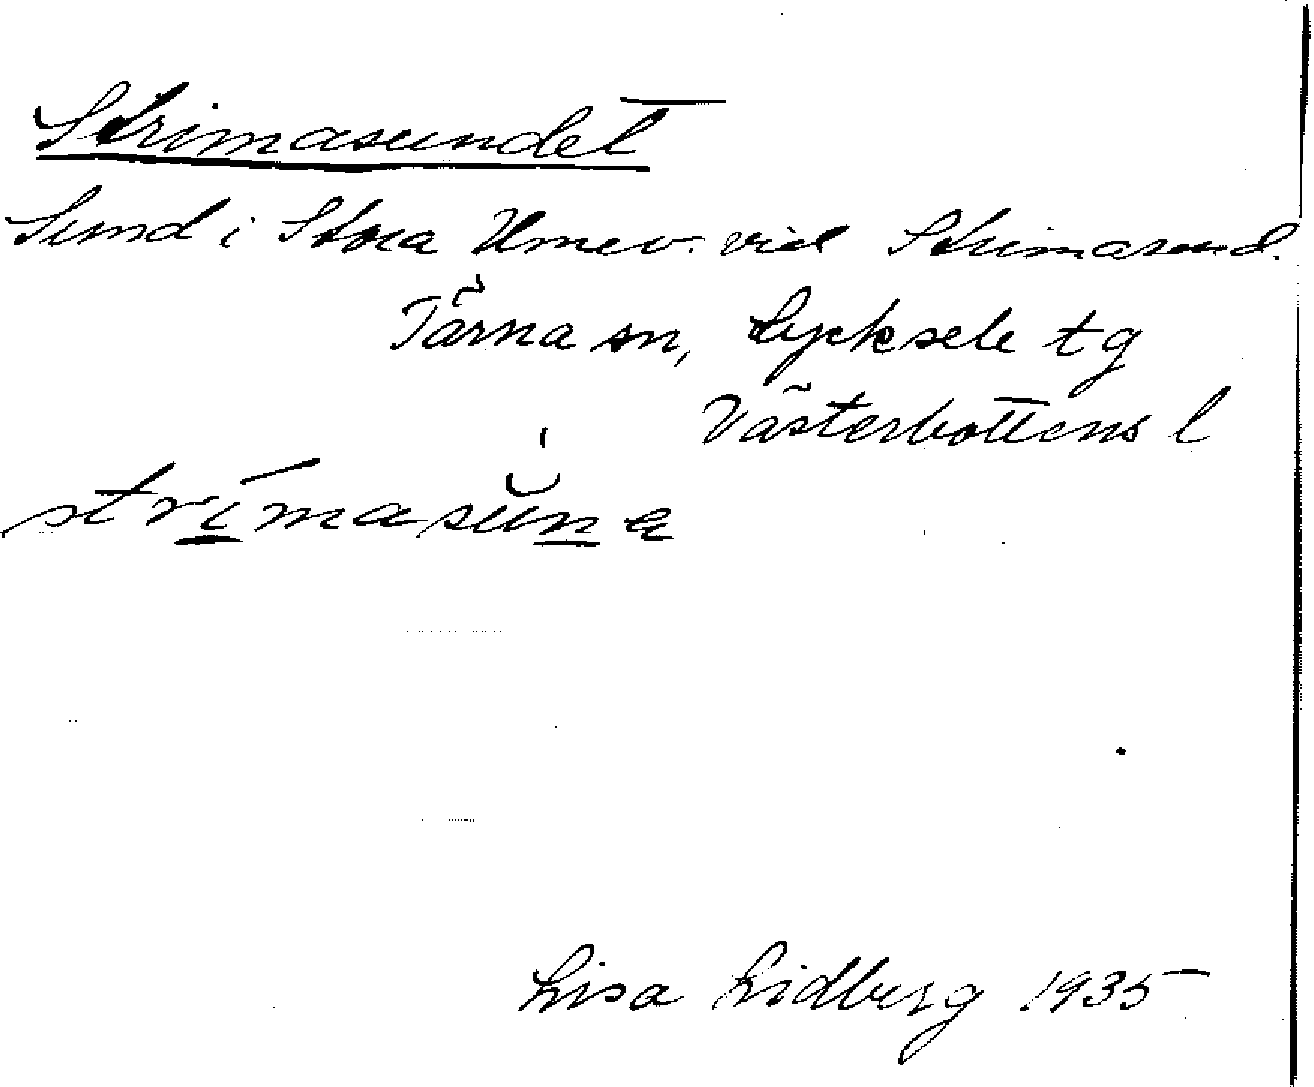 Strimasundet
Sund i Stora Umev. vid Strimasund.
Tärna sn, Lycksele tg
Västerbottens l
strimasuna
Lisa Lidberg 1935